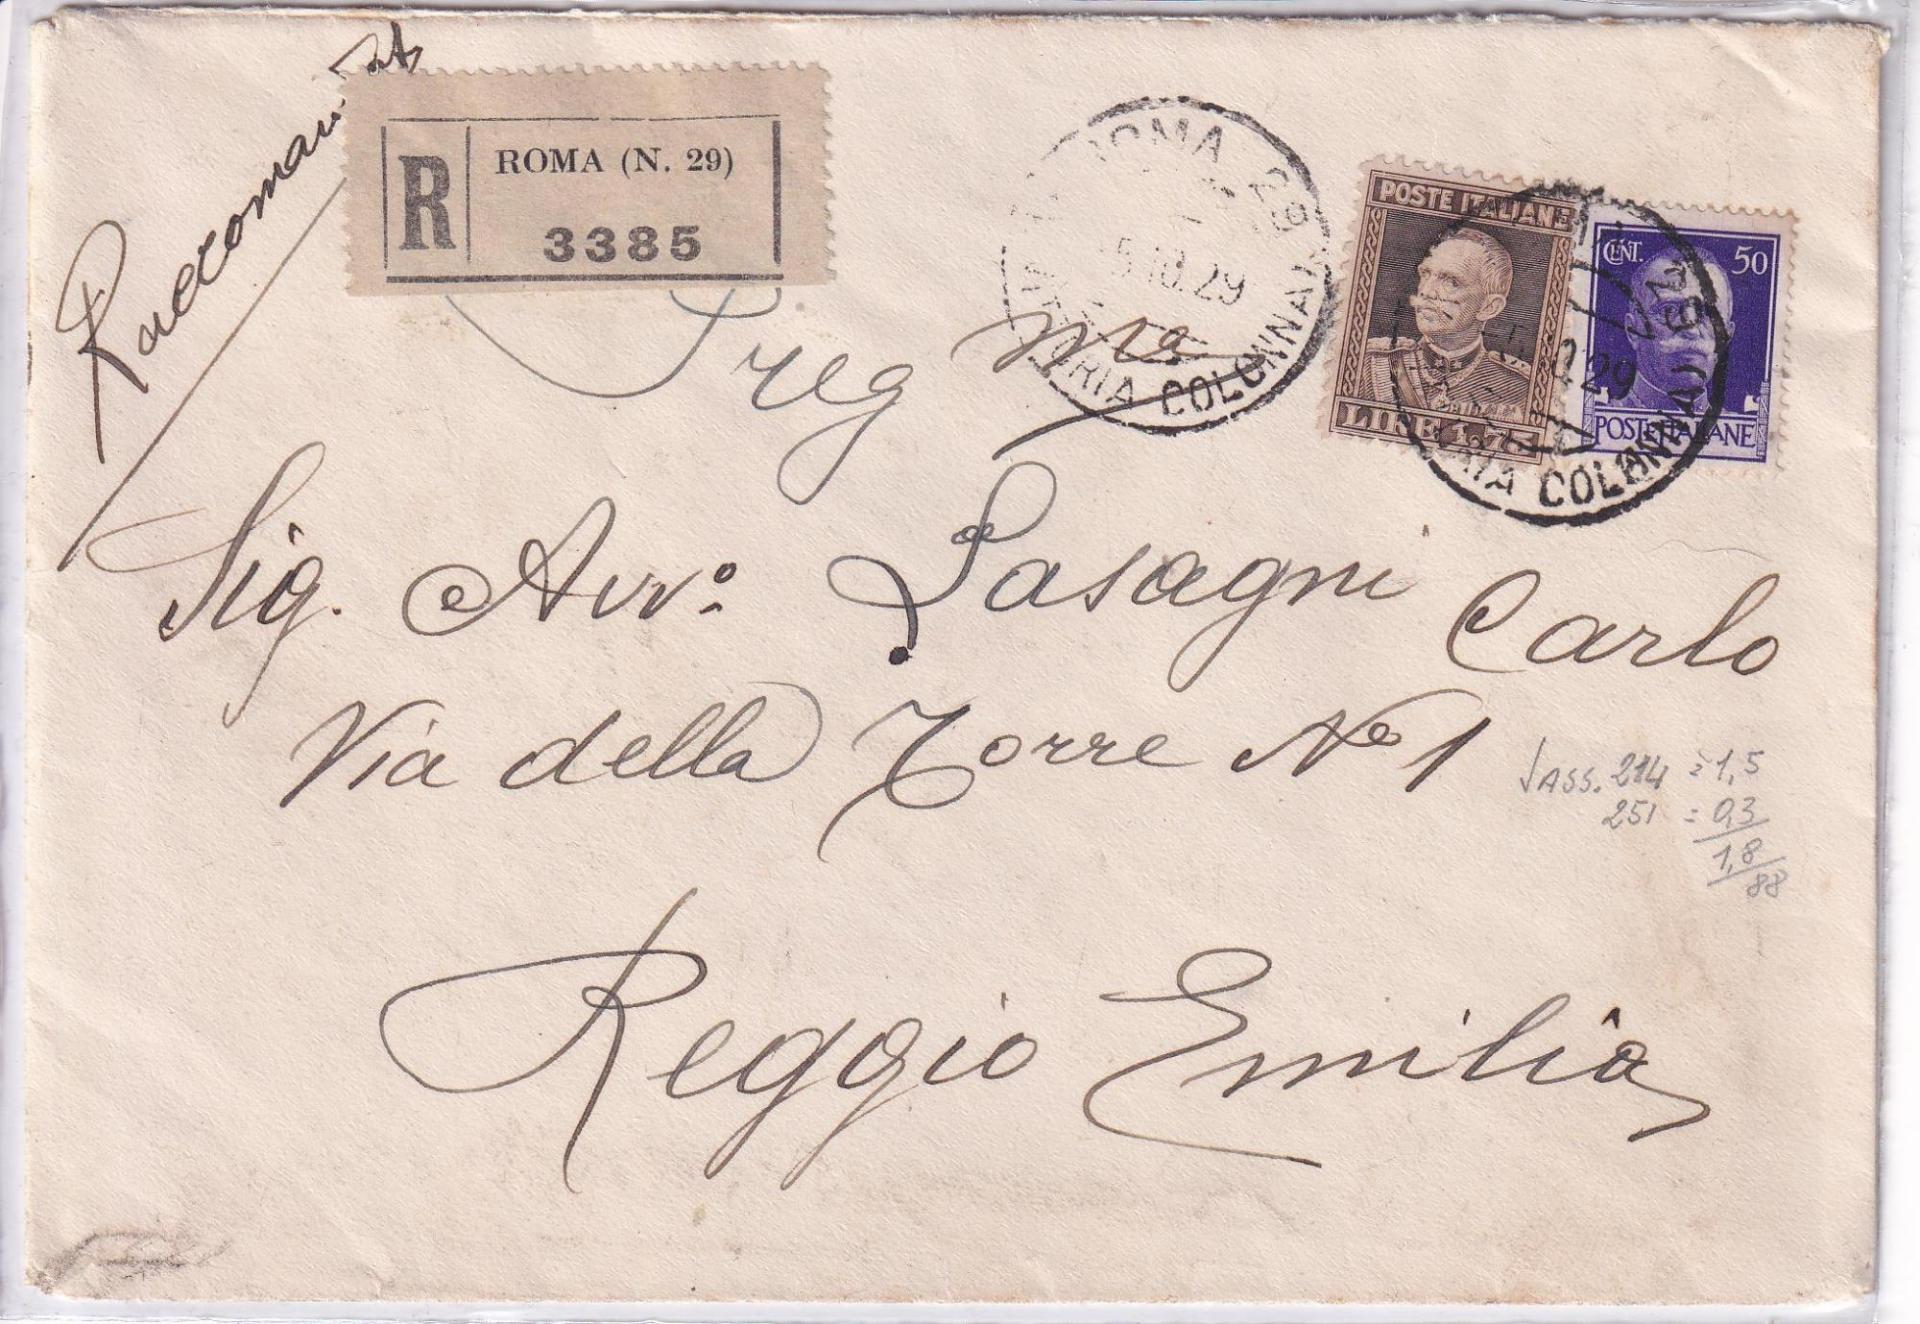 Raccomandata
R ROMA (N. 29)
3385
ROMA 29
5.10.29
VITTORIA COLONNA)
POSTE ITALIANE
LIRE 1,75
CENT. 50
POSTE ITALIANE
29
COLONNA)
Preg ma
Sig. Avv.º Lasagni Carlo
Via della Torre Nº 1
Reggio Emilia
√ ASS. 214 = 1,5
251 = 0,3
1,8
88